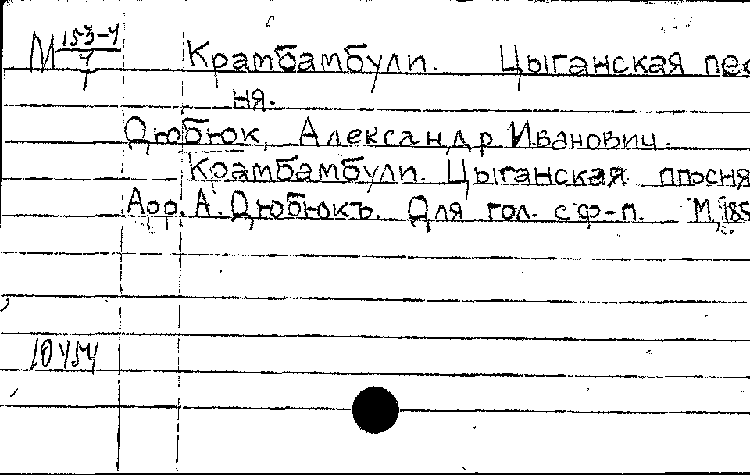 М 153-4 Крамбамбули. Цыганская пес
7
1
ня.
Дюбюк, Александр Иванович.
Крамбамбули. Цыганская пѣсня
Арр. А. Дюбюкъ. Для гол. с ф-п. М, 185
10454